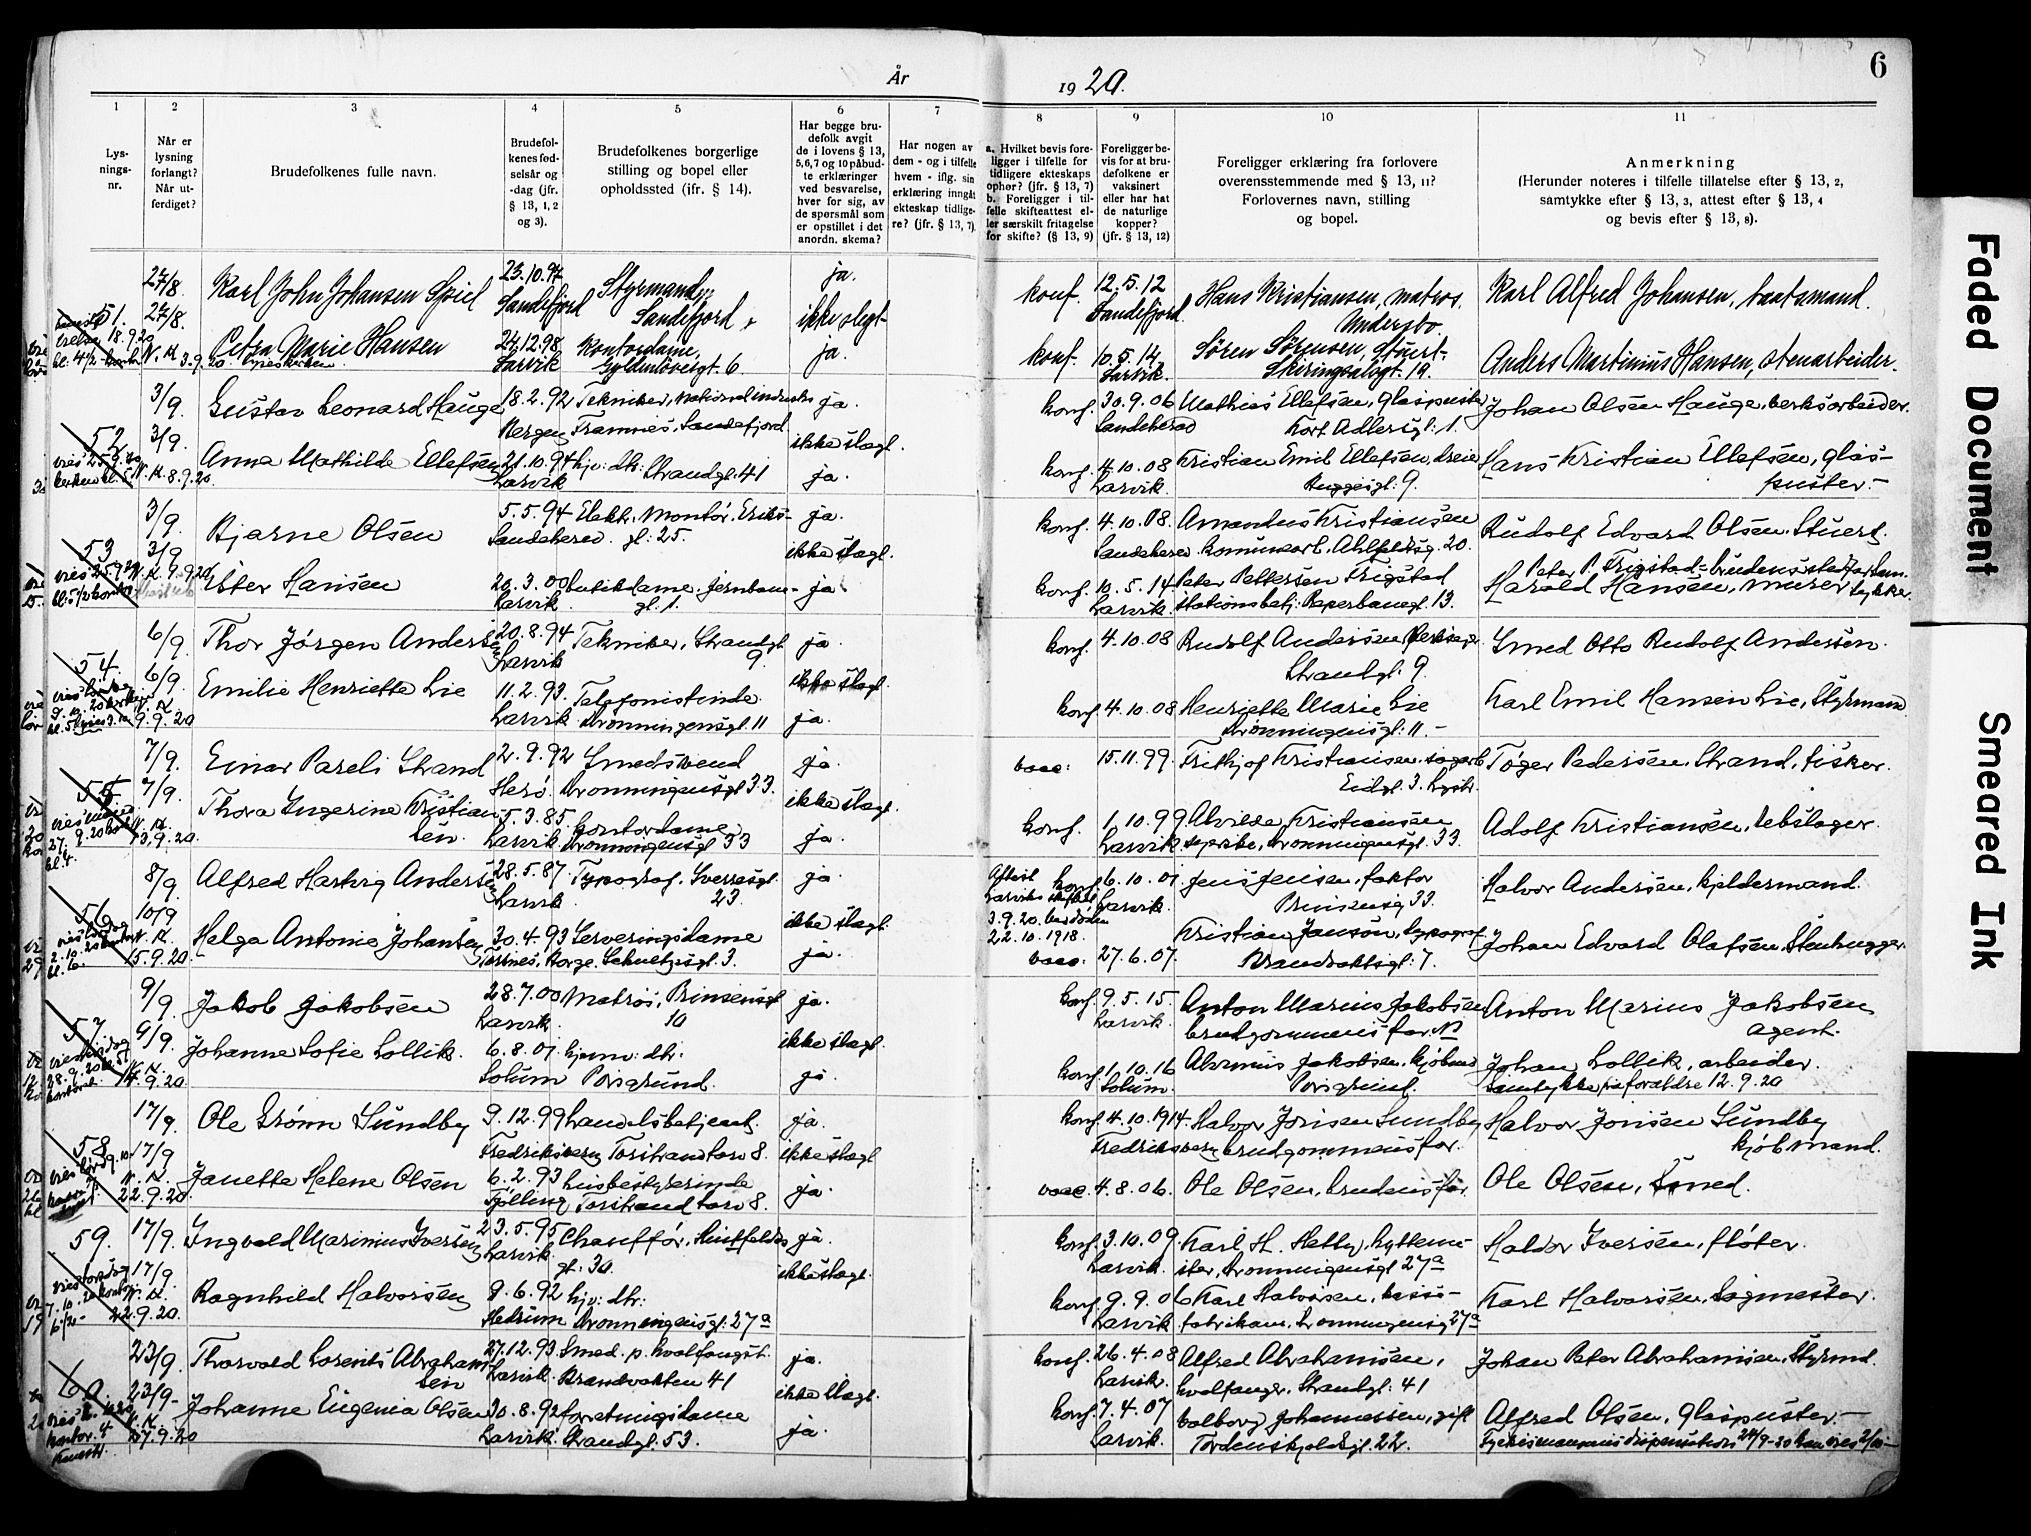 År
1920.
6
1
2
3
4
5
6
7
8
9
10
11
Lys-
nings-
nr.
Når er
lysning
forlangt?
Når ut-
ferdiget?
Brudefolkenes fulle navn.
Brudefol-
kenes fød-
selsår og
-dag (jfr.
§ 13, 1, 2
og 3).
Brudefolkenes borgerlige
stilling og bopel eller
opholdssted (ifr. § 14).
Har begge bru-
defolk avgit
de i lovens § 13,
5,6,7 og 10 påbud-
te erklæringer
ved besvarelse,
hver for sig, av
de spørsmål som
er opstillet i det
anordn. skema?
Har nogen av
dem - og i tilfelle
hvem - iflg. sin
erklæring inngåt
ekteskap tidlige-
re? (jfr. § 13, 7)
a. Hvilket bevis fore-
ligger i tilfelle for
tidligere ekteskaps
ophør? (jfr. § 13, 7)
b. Foreligger i til-
felle skifteattest el-
ler særskilt fritagelse
for skifte? (§ 13, 9)
Foreligger be-
vis for at bru-
defolkene er
vaksinert
eller har hat
de naturlige
kopper?
(jfr. § 13, 12)
Foreligger erklæring fra forlovere
overensstemmende med § 13, 11?
Forlovernes navn, stilling
og bopel.
Anmerkning
(Herunder noteres i tilfelle tillatelse efter § 13, 2,
samtykke efter § 13, 3, attest efter § 13, 4
og bevis efter § 13, 8).
51.
27/8.
27/8.
Karl John Johansen Spiel
23.10.97
Sandefjord
Styrmand,
Sandefjord
ja.
ikke slegt
konf.
12.5.12
Sandefjord.
Hans Kristiansen, matros.
Undersbo.
Karl Alfred Johansen, baatsmand.
Petra Marie Hansen
24.12.98
Larvik
Kontordame,
Gyldenløvesgt. 6.
ja.
konf.
10.5.14.
Larvik.
Søren Sørensen, Stuert.
Skiringsalsgt. 19.
Anders Martinius Hansen, stenarbeider.
52
3/9.
3/9.
8.9.20.
Gustav Leonard Hauge
18.2.92
Bergen
Tekniker, national industri
Framnes, Sandefjord
ja.
ikke slegt.
konf.
30.9.06
Sandeherad
Mathias Ellefsen, glaspuster
Kort Adlersgt. 1.
Johan Olsen Hauge, verksarbeider.
Anna Mathilde Ellefsen
21.10.94
Larvik
hjv. dtr. Strandgt. 41
ja.
konf.
4.10.08
Larvik.
Kristian Emil Ellefsen, dreier
9.
Hans Kristian Ellefsen, glas-
puster.-
53
3/9.
3/9
Bjarne Olsen
5.5.94
Sandeherred.
Elektr. Montør. Eriks-
gt. 25.
ja.
ikke slegt.
konf.
4.10.08.
Sandeherred
Amandus Kristiansen
komunearb. Ahlfeldtsg. 20.
Rudolf Edvard Olsen, Stuert.
Ester Hansen
20.3.00
Larvik
butikdame. Jernbane-
gt. 1.
ja
konf.
10.5.14
Larvik.
Peter Pettersen Frigstad
stationsbetj. Reperbanegt. 13.
Peter P. Frigstad = brudens stedfar sam-
tykker.
Harald Hansen, murer
54
6/9.
6/9.
9.9.20
Thor Jørgen Andersen
20.8.94
Larvik
Tekniker, Strandgt.
9.
ja
ikke slegt.
konf.
4.10.08
Rudolf Andersen
Strandgt. 9
Smed Otto Rudolf Andersen.
Emilie Henriette Lie
11.2.93.
Larvik
Telefonistinde
Dronningensgt. 11
ja.
konf.
4.10.08
Henriette Marie Lie
Dronningensgt. 11.-
Karl Emil Hansen Lie, Styrmand
55
7/9.
7/9.
13.9.20.
Einar Pareli Strand
2.9.92
Herø.
Smedsvend
Dronningensgt. 33.
ja.
ikke slegt.
vacc.
15.11.99.
Frithjof Kristiansen
Eidgt. 3.
Tøger Pedersen Strand, fisker.
Thora Ingerine Kristian-
sen.
5.3.85.
Larvik
Kontordame
Dronningensgt 33
ja.
konf.
1.10.99
Larvik
Alvilde Kristiansen
syerske, Dronningensgt. 33.
Adolf Kristiansen, rebslager.
56
8/9.
10/9
15.9.20.
Alfred Hartvig Andersen
28.5.87
Larvik
Typograf. Sverresgt.
23.
ja.
ikke slegt.
3.9.20.
22.10.1918.
konf.
6.10.01
Larvik.
Jens Jensen, faktor
Prinsensg 33.
Halvor Andersen, kjeldermand.
Helga Antonie Johansen
30.4.93
Serveringsdame
ja.
vacc.
27.6.07.
Kristian Janson, typograf.
Brandvaktsgt. 7.
Johan Edvard Olafsen, Stenhugger
57
9/9.
9/9.
14.9.20
Jakob Jakobsen
28.7.00
Larvik.
Matros, Prinsensgt
10
ja.
ikke slegt.
konf.
9.5.15.
Larvik.
Anton Marius Jakobsen
brudgommens far.
Anton Marius Jakobsen
agent.
Johanne Sofie Lollik.
6.8.01.
Solum
hjem. dtr.
Porsgrund.
ja
konf.
1.10.16
Solum.
Jakobsen, kjøbmd
Porsgrund.
Johan Lollik, arbeider.
Samtykke fra forældre 12.9.20
58
17/9.
17/9
22.9.20.
Ole Grønn Sundby
9.12.99
Fredriksvern
handelsbetjent.
Torstrand torv 8.
ja.
ikke slegt
konf.
4.10.1914.
Fredriksvern
Halvor Jonsen Sundby
brudgommens far.
Halvor Jonsen Sundby
kjøbmand.
Janette Helene Olsen
6.2.93
Tjølling
husbestyrerinde
Torstrand torv 8.
ja.
vacc.
4.8.06.
Ole Olsen, brudens far.
Ole Olsen, Smed.
59.
17/9.
17/9.
22.9.20.
Ingvald Marinius Iversen
23.5.95
Larvik.
Chauffør, Huitfeldts
gt. 30.
ja.
ikke slegt.
konf.
3.10.09
Larvik.
Karl H. Hetby, hytteme-
ster, Dronningensgt 27a
Haldor Iversen, fløter.
Ragnhild Halvorsen
9.6.92
Hedrum
hjv. dtr.
Dronningensgt. 27a
konf.
9.9.06
Larvik
Karl Halvorsen,
fabrikarb. Dronningensg 27a
Karl Halvorsen, Sagmester.
60.
23/9.
23/9-
27.9.20
Thorvald Lorents Abraham-
sen
27.12.93.
Larvik.
Smed. p. hvalfangst.
Brandvakten 41
ja.
ikke slegt.
konf.
26.4.08
Larvik.
Alfred Abrahamsen,
hvalfanger, Strandgt. 41
Johan Peter Abrahamsen, Styrmd.
Johanne Eugenia Olsen
30.8.92
Larvik.
forretningsdame
Strandgt. 53.
ja.
konf.
7.4.07
Larvik.
Valborg Johannessen, gift
Tordenskjoldsgt. 22.
Alfred Olsen, Glaspuster.-
Faded Document
Smeared Ink